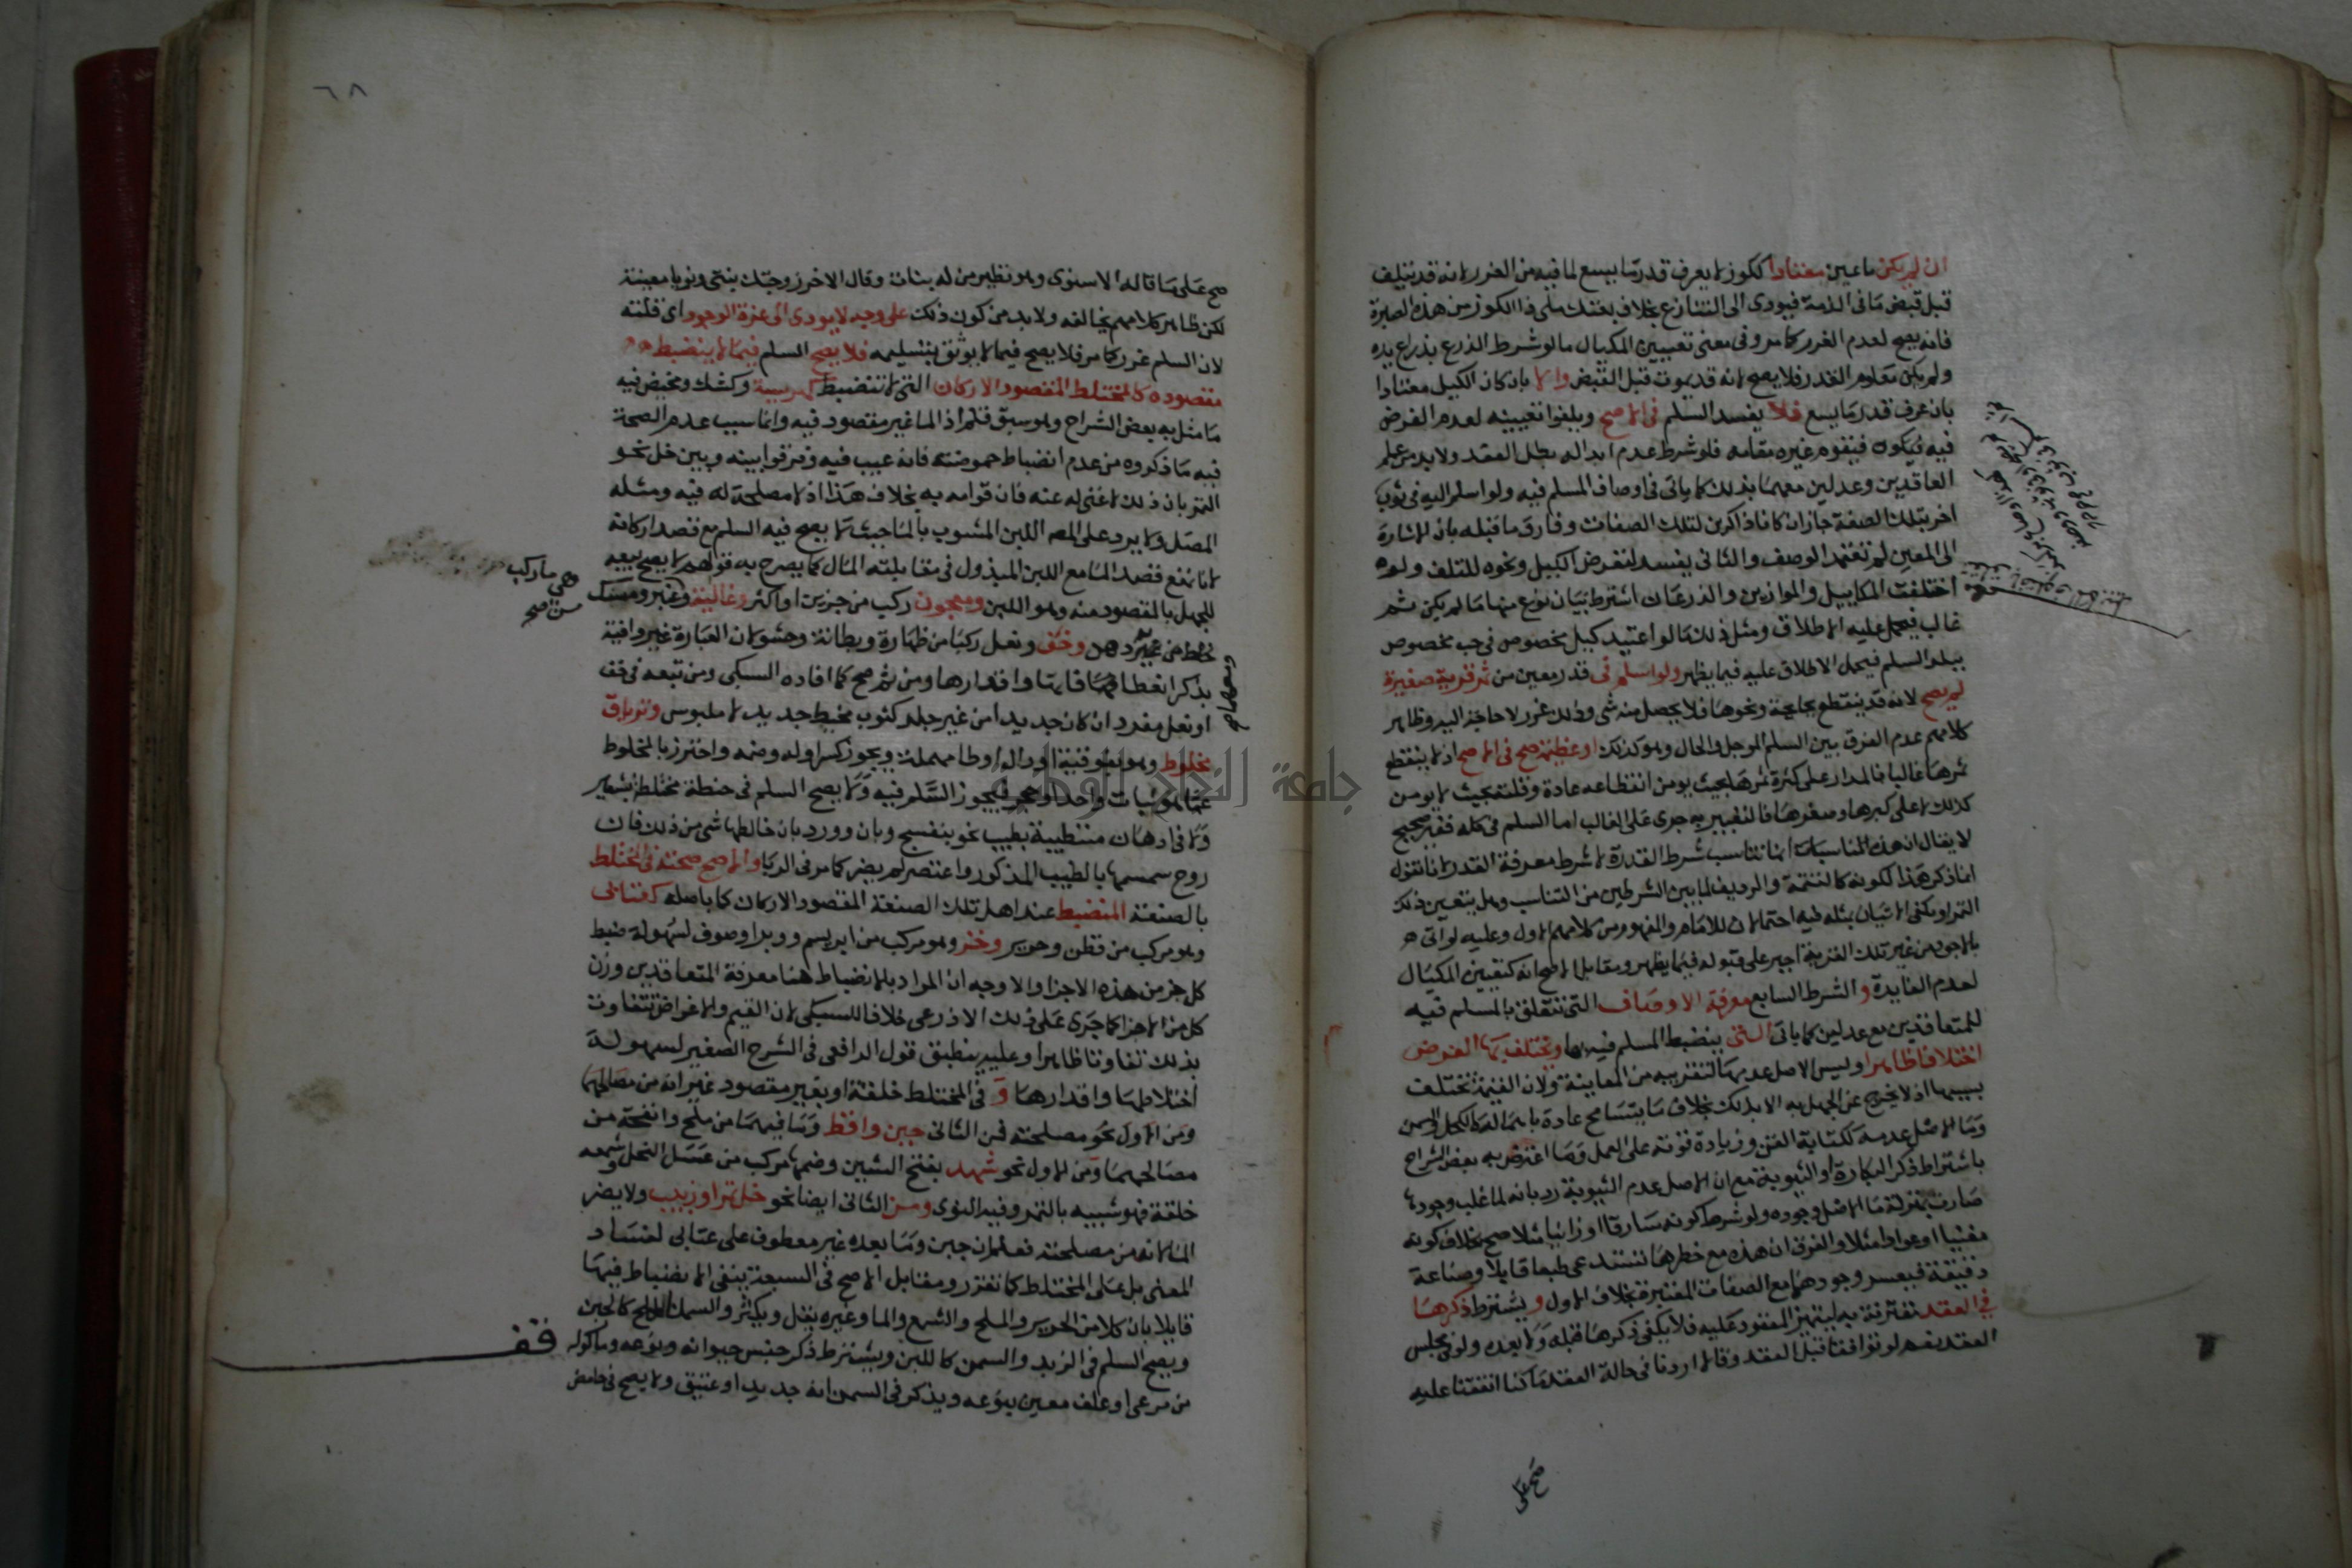 ان لم يكن ماعين معتادا ككوز لا يعرف قدر ما يسع لما فيه من الغرر لانه قد يتلف
قبل قبض ما في الذمة فيودى الى التنازع بخلاف بعتك ملى ذا الكوز من هذه الصبرة
فانه يصح لعدم الغرر كما مر وفى معنى تعيين المكيال ما لو شرط الذرع بذراع يده
ولم يكن معلوم القدر فلا يصح لانه قد يموت قبل القبض والا بان كان الكيل معتادا
بان عرف قدر ما يسع فلا يفسد السلم فى الاصح ويلغوا تعيينه لعدم الغرض
فيه فيقوم غيره مقامه فلو شرط عدم ابداله بطل العقد ولا بد من علم
العاقدين وعدلين معهما بذلك كما ياتى فى اوصاف المسلم فيه ولو اسلم اليه فى ثوب
اخر بتلك الصفة جاز ان كانا ذاكرين لتلك الصفات وفارق ما قبله بان الاشارة
الى المعين لم تعتمد الوصف والثانى يفسد لتعرض الكيل ونحوه للتلف ولو
اختلفت المكاييل والموازين والذرعان اشترط بيان نوع منها ما لم يكن ثم
غالب فيحمل عليه الاطلاق ومثل ذلك ما لو اعتيد كيل مخصوص فى حب مخصوص
ببلد السلم فيحمل الاطلاق عليه فيما يظهر ولو اسلم فى قدر معين من ثمر قرية صغيرة
لم يصح لانه قد ينقطع بجايحة ونحوها فلا يحصل منه شى وذلك غرر لا حاجة اليه وظاهر
كلامهم عدم الفرق بين السلم الموجل والحال وهو كذلك او عظيمة صح فى الاصح اذ لا ينقطع
ثمرها غالبا فالمدار على كثرة ثمرها بحيث يومن انقطاعه عادة وقلته بحيث لا يومن
كذلك لا على كبرها وصغرها فالتعبير به جرى على الغالب اما السلم فى كله فغير صحيح
لا يقال ان هذه المناسبات انما تناسب شرط القدرة لا شرط معرفة القدر لانا نقول
انما ذكر هذا لكونه كالتتمة والرديف لما بين الشرطين من التناسب وهل يتعين ذلك
الثمر او يكفى الاتيان بمثله فيه احتمالان للامام والمفهوم من كلامهم الاول وعليه لو اتى
بالاجود من غير تلك القرية اجبر على قبوله فيما يظهر ومقابل الاصح انه كتعيين المكيال
لعدم الفايدة و الشرط السابع معرفة الاوصاف التى تتعلق بالمسلم فيه
للمتعاقدين مع عدلين كما ياتى التى ينضبط المسلم فيه بها وتختلف بها الغرض
اختلافا ظاهرا وليس الاصل عدمها لتقريبه من المعاينة ولان القيمة تختلف
بسببها اذ لا يخرج عن الجهل به الا بذلك بخلاف ما يتسامح عادة باهماله كالكحل والسمن
وما الاصل عدمه ككتابة القن وزيادة قوته على العمل وما اعترض به بعض الشراح
باشتراط ذكر البكارة او الثيوبة مع ان الاصل عدم الثيوبة رد بانه لما غلب وجودها
صارت بمنزلة ما الاصل وجوده ولو شرط كونه سارقا او زانيا مثلا صح بخلاف كونه
مغنيا او عوادا مثلا والفرق ان هذه مع خطرها تستدعى طبعا قابلا وصناعة
دقيقة فيعسر وجودها مع الصفات المعتبرة بخلاف الاول و يشترط ذكرها
فى العقد مقترنة به ليتميز المعقود عليه فلا يكفى ذكرها قبله ولا بعده ولو فى مجلس
العقد نعم لو توافقا قبل العقد وقالا اردنا فى حالة العقد ما كنا اتفقنا عليه
صح على
٦٨
صح على ما قاله الاسنوى وهو نظير من له بنات وقال الاخر زوجتك بنتى ونويا معينة
لكن ظاهر كلامهم يخالفه ولا بد من كون ذلك على وجه لا يودى الى عزة الوجود اى قلته
لان السلم غرر كما مر فلا يصح فيما لا يوثق بتسليمه فلا يصح السلم فيما لا ينضبط
مقصوده كالمختلط المقصود الاركان التى لا تنضبط كهريسة وكشك ومخيض فيه
ما مثل به بعض الشراح وهو سبق قلم اذ الما غير مقصود فيه وانما سبب عدم الصحة
فيه ما ذكروه من عدم انضباط حموضته فانه عيب فيه وفرقوا بينه وبين خل نحو
التمر بان ذلك لا غنى له عنه فان قوامه به بخلاف هذا اذ لا مصلحة له فيه ومثله
المصل ولا يرد على المص اللبن المشوب بالما حيث لا يصح فيه السلم مع قصد اركانه
لانا نمنع قصد الما مع اللبن المبذول فى مقابلته المال كما يصرح به قولهم لا يصح بيعه
للجهل بالمقصود منه وهو اللبن ومعجون ركب من جزين او اكثر وغالية وعنبر ومسك
وهى ما ركب من صح
ودهن وخف ونعل ركبا من ظهارة وبطانة وحشو لان العبارة غير وافية
بذكر انعطافهما واقدارها ومن ثم صح كما افاده السبكى ومن تبعه فى خف
او نعل مفرد ان كان جديدا من غير جلد كثوب مخيط جديد لا ملبوس وترياق
مخلوط وهو بفوقية او دال او طا مهملة ويجوز كسر اوله وضمه واحترز بالمخلوط
عما هو نبات واحد او حجر فيجوز السلم فيه ولا يصح السلم فى حنطة مختلطة بشعير
ولا فى ادهان مطيبة بطيب نحو بنفسج وبان وورد بان خالطها شى من ذلك فان
روح سمسمها بالطيب المذكور واعتصر لم يضر كما مر فى الربا والاصح صحته فى المختلط
بالصنعة المنضبط عند اهل تلك الصنعة المقصود الاركان كما باصله كعتابى
وهو مركب من قطن وحرير وخز وهو مركب من ابريسم ووبر او صوف لسهولة ضبط
كل جز من هذه الاجزا والاوجه ان المراد بالانضباط هنا معرفة المتعاقدين وزن
كل من الاجزا كما جرى على ذلك الاذرعى خلافا للسبكى لان القيم والاغراض تتفاوت
بذلك تفاوتا ظاهرا وعليه ينطبق قول الرافعى فى الشرح الصغير لسهولة
اختلاطها واقدارها و فى المختلط خلقة او بغير مقصود غير انه من مصالحها
ومن الاول نحو مصلحته فمن الثانى جبن واقط وما فيهما من ملح وانفحة من
مصالحهما ومن الاول نحو شهد بفتح الشين وضمها مركب من عسل النحل وشمعه
خلقة فهو شبيه بالتمر وفيه النوى ومن الثانى ايضا نحو خل تمر او زبيب ولا يضر
الما لانه من مصلحته فعلم ان جبن وما بعده غير معطوف على عتابى لفساد
المعنى بل على المختلط كما تقرر ومقابل الاصح فى السبعة ينفى الانضباط فيها
قايلا بان كلا من الحرير والملح والشمع والما وغيره يقل ويكثر والسمك المملح كالجبن
ويصح السلم فى الزبد والسمن كاللبن ويشترط ذكر جنس حيوانه ونوعه وماكوله
من مرعى او علف معين بنوعه ويذكر فى السمن انه جديد او عتيق ولا يصح فى حامض
وقف
جامعة النجاح الوطنية